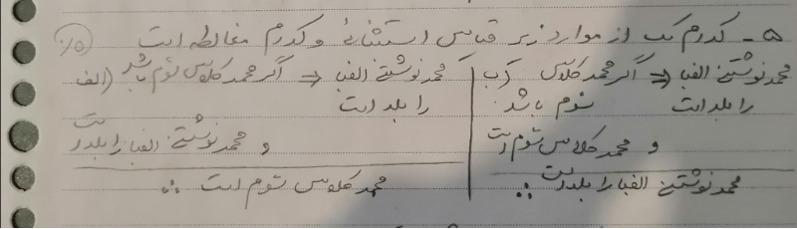 ۵- کدام یک از موارد زیر قیاس استثنائی و کدام مغالطه است (۱/۵)
الف) اگر محمد کلاس سوم باشد ⇒ محمد نوشتن الفبا را بلد است
و محمد نوشتن الفبا را بلد است
∴ محمد کلاس سوم است
ب) اگر محمد کلاس سوم باشد ⇒ محمد نوشتن الفبا را بلد است
و محمد کلاس سوم است
∴ محمد نوشتن الفبا را بلد است